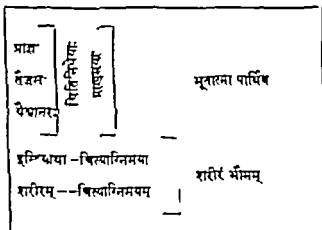 प्राज्ञ
तैजस
वैश्वानर
चितेनिधेयाः
प्राणमयाः
भूतात्मा पार्थिव
इन्द्रियाया -चित्याग्निमया
शरीरम्--चित्याग्निमयम्
शरीरं भौमम्